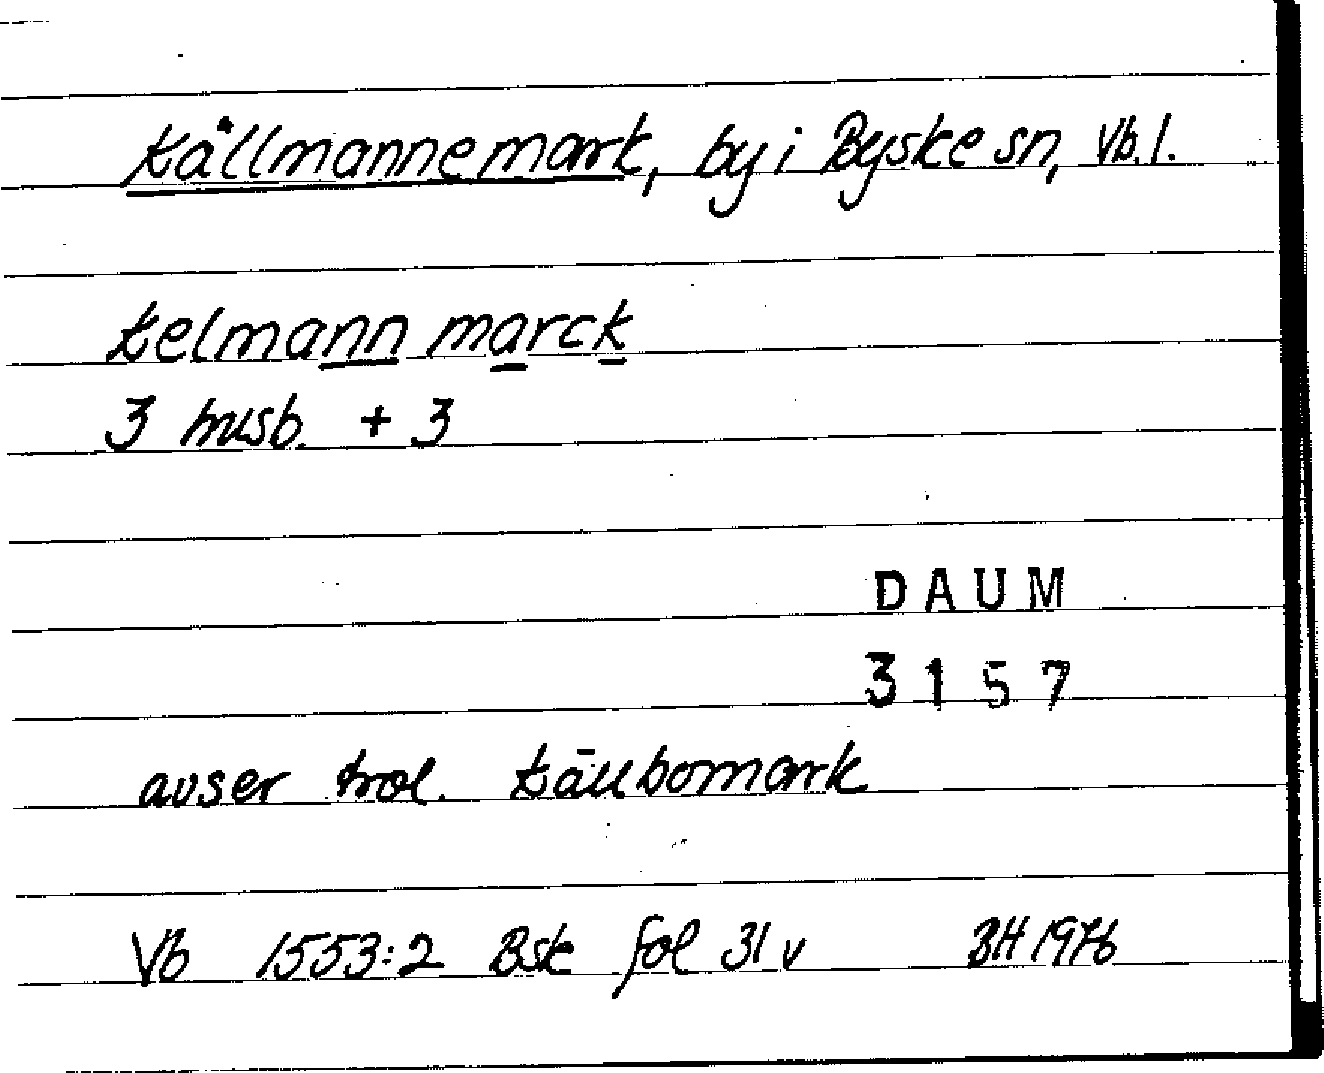 Källmannemark, by i Byske sn, Vb. l.
kelmann marck
3 husb. + 3
DAUM
3157
avser trol. Källbomark
Vb 1553:2 Bsk fol 31 v BH 1976